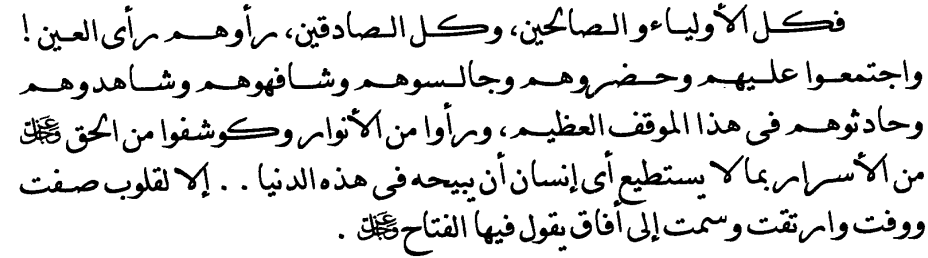 فكل الأولياء و الصالحين، وكل الصادقين، رأوهم رأى العين !
واجتمعوا عليهم وحضروهم وجالسوهم وشافهوهم وشاهدوهم
وحادثوهم فى هذا الموقف العظيم، ورأوا من الأنوار وكوشفوا من الحق ﷻ
من الأسرار بما لا يستطيع أى إنسان أن يبيحه فى هذه الدنيا . . إلا لقلوب صفت
ووفت وارتقت وسمت إلى أفاق يقول فيها الفتاح ﷻ .